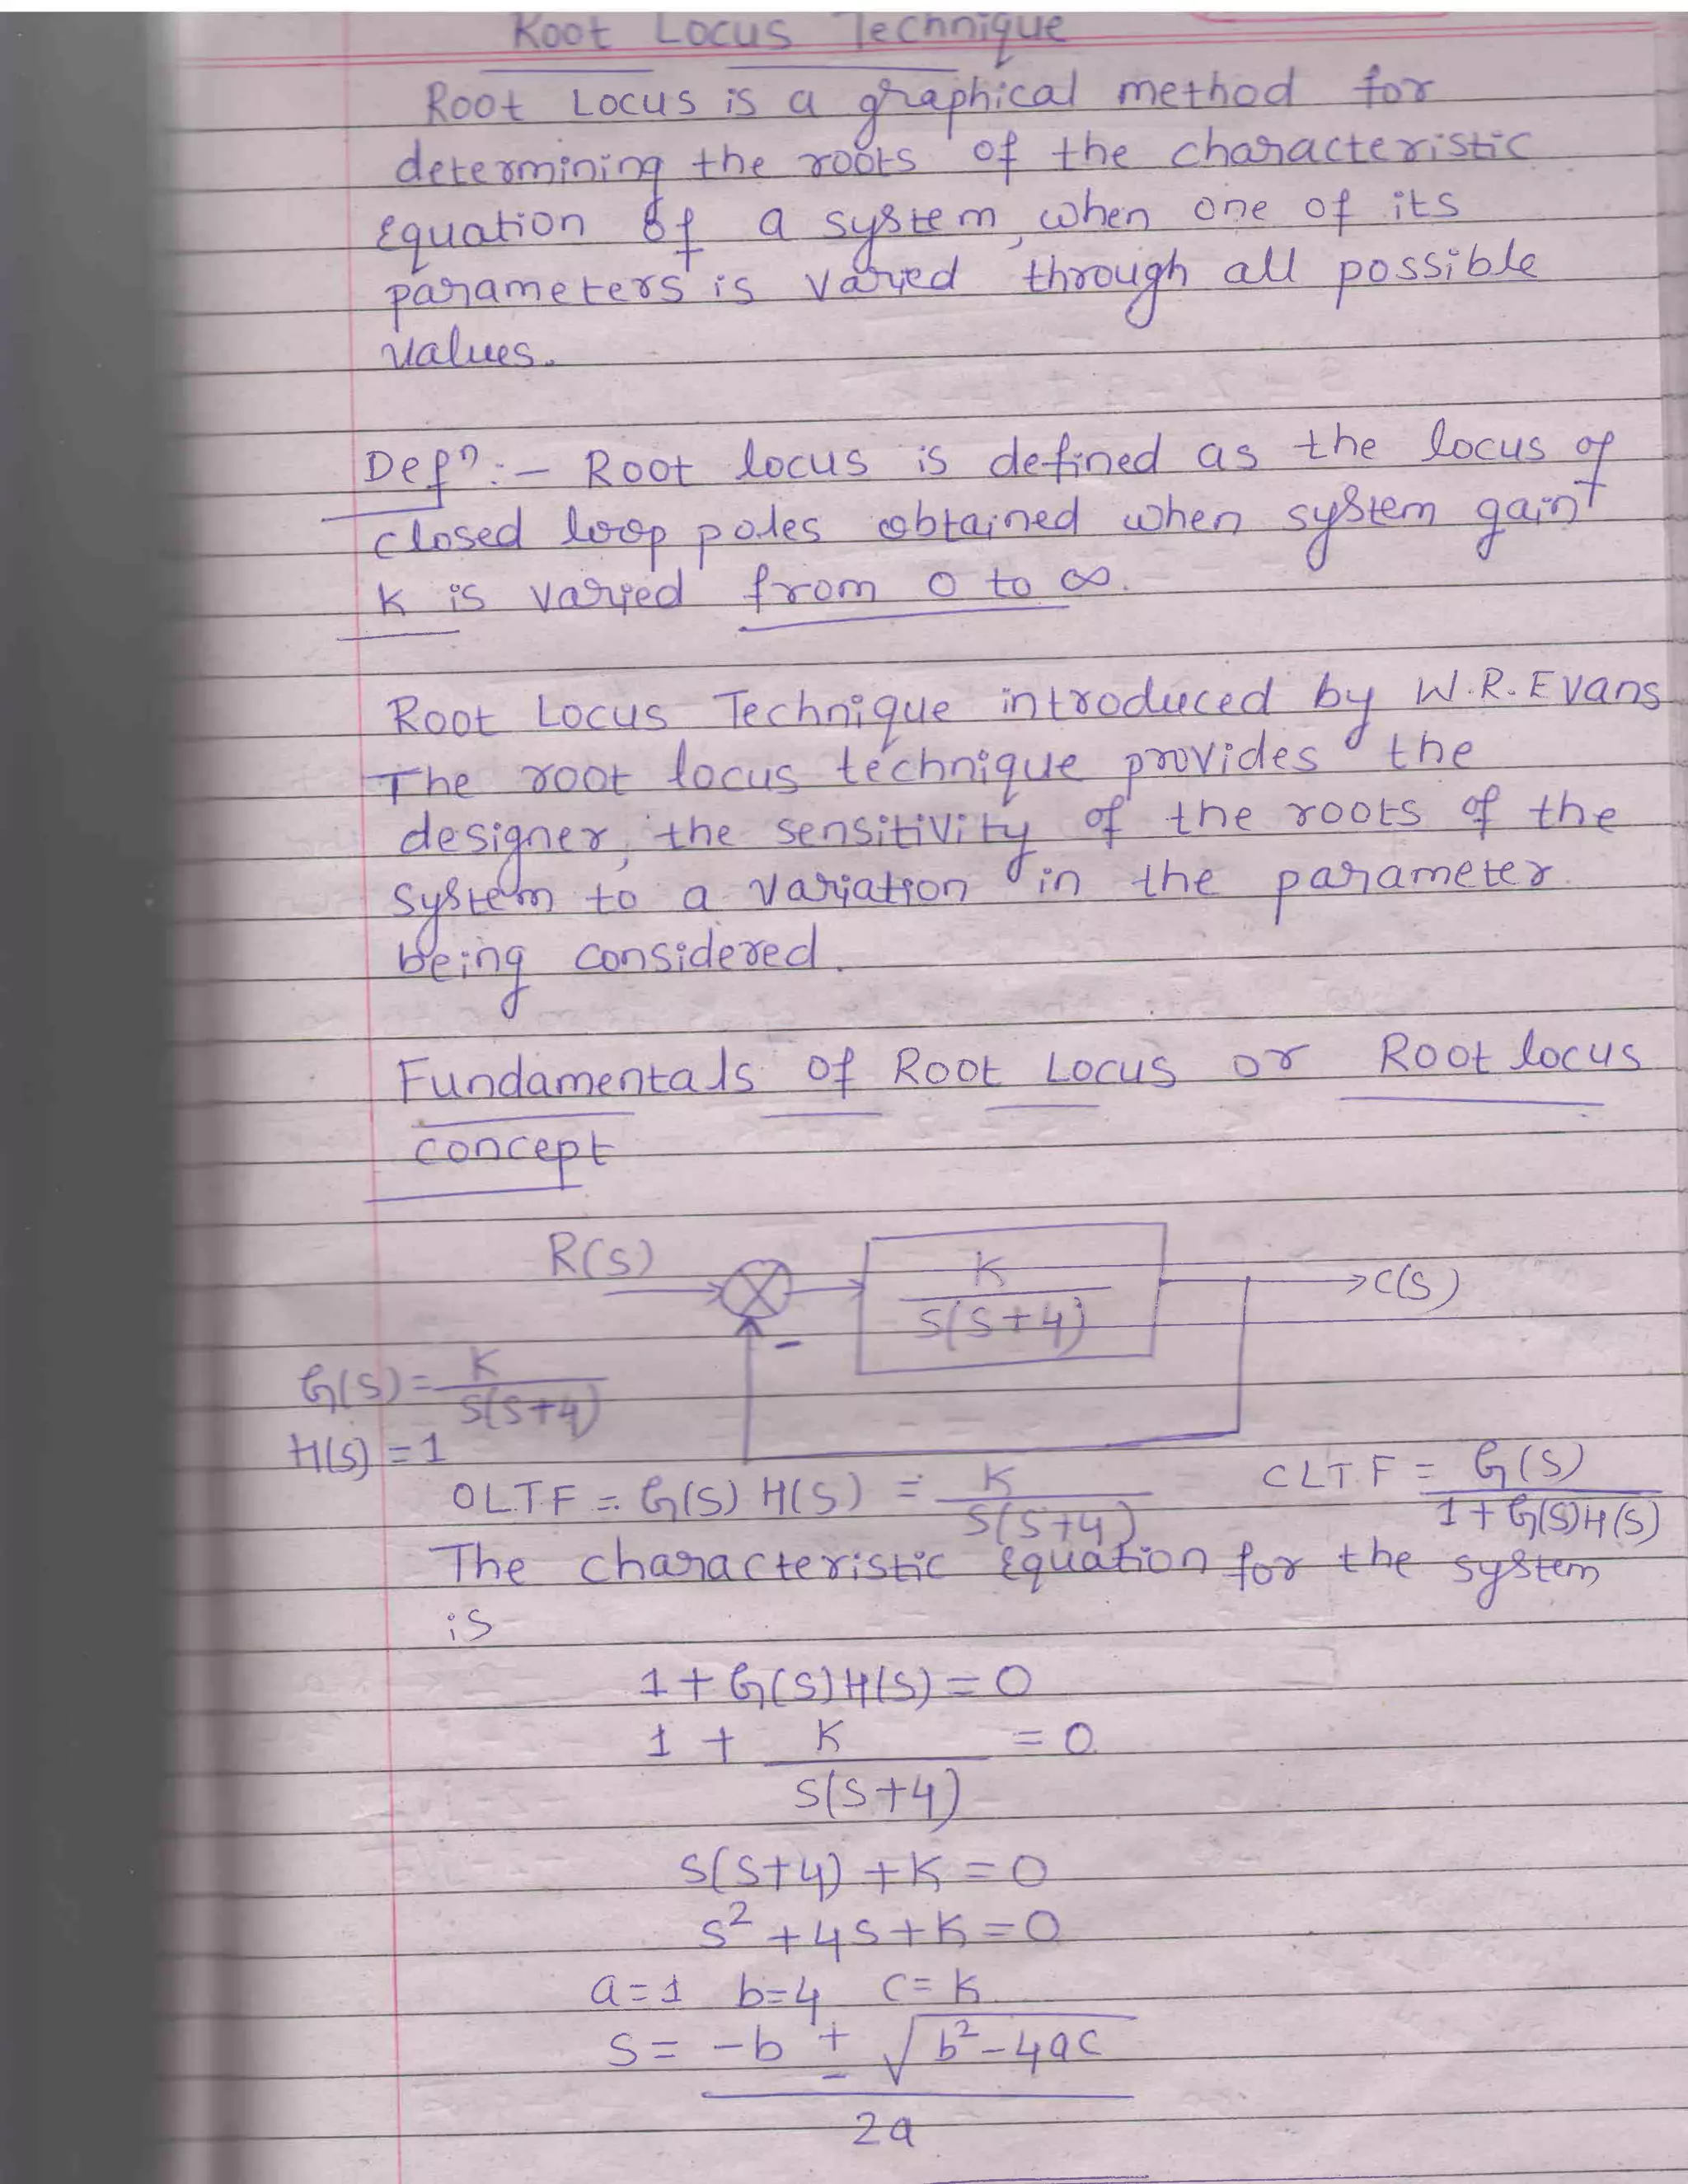 Root Locus Technique
Root Locus is a graphical method for
determining the roots of the characteristic
Equation of a system, when one of its
parameters is varied through all possible
values.
Defn:- Root locus is defined as the locus of
closed loop poles obtained when system gain
K is varied from 0 to ∞.
Root Locus Technique introduced by W.R.Evans
The root locus technique provides the
designer, the sensitivity of the roots of the
system to a variation in the parameter
being considered.
Fundamentals of Root Locus or Root locus
concept
R(s)
K
S(S+4)
→C(S)
-
G(S)=K/S(S+4)
H(S)=1
OLTF = G(S) H(S) = K/S(S+4)
CLTF = G(S)/1+G(S)H(S)
The characteristic Equation for the system
is
1+G(S)H(S)=0
1 + K/S(S+4) =0
S(S+4)+K=0
S²+4S+K=0
a=1 b=4 C=K
S= -b ± √b²-4ac
2a